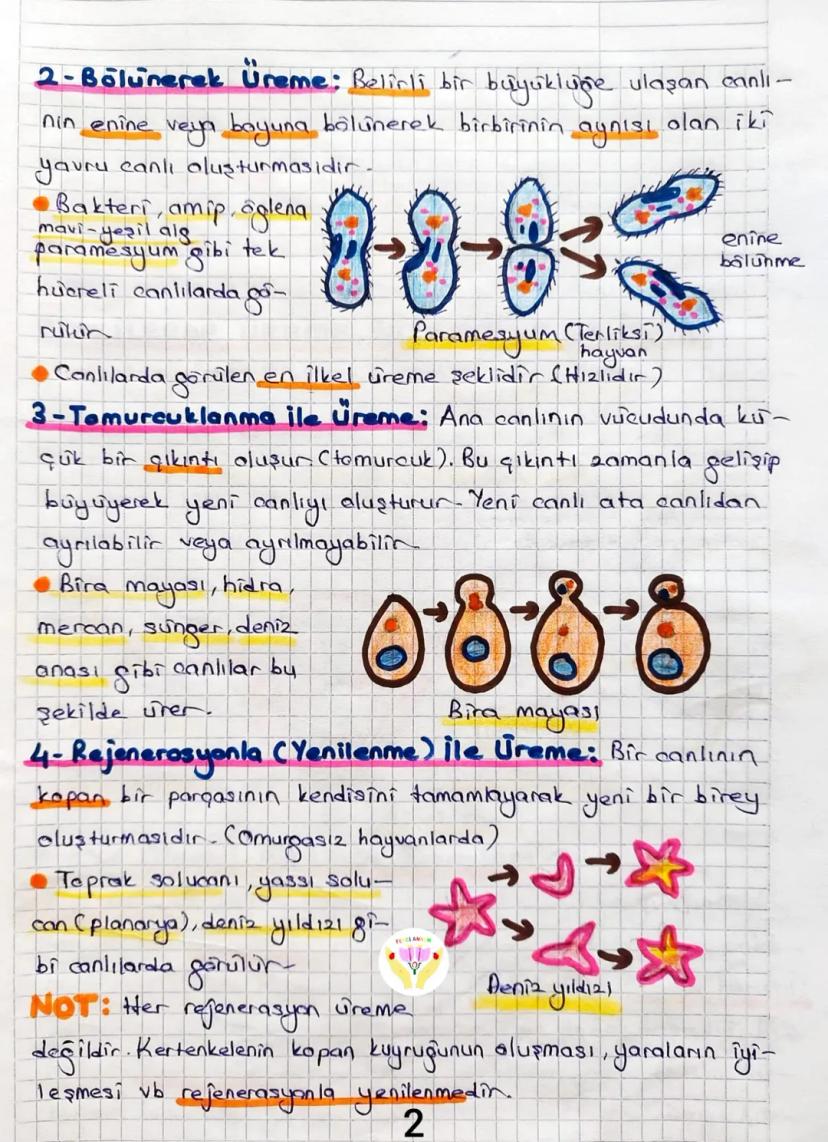 2-Bölünerek Üreme: Belirli bir büyüklüğe ulaşan canlı-
nın enine veya boyuna bölünerek birbirinin aynısı olan iki
yavru canlı oluşturmasıdır.
• Bakteri, amip, öglena
mavi-yeşil alg
paramesyum gibi tek
hücreli canlılarda gö-
rülür
enine
bölünme
Paramesyum (Terliksi)
hayvan
• Canlılarda görülen en ilkel üreme şeklidir (Hızlıdır)
3-Tomurcuklanma ile Üreme: Ana canlının vücudunda kü-
çük bir çıkıntı oluşur (tomurcuk). Bu çıkıntı zamanla gelişip
büyüyerek yeni canlıyı oluşturur. Yeni canlı ata canlıdan
ayrılabilir veya ayrılmayabilir
• Bira mayası, hidra,
mercan, sünger, deniz
anası gibi canlılar bu
şekilde ürer.
Bira mayası
4-Rejenerasyonla (Yenilenme) İle Üreme: Bir canlının
kopan bir parçasının kendisini tamamlayarak yeni bir birey
oluşturmasıdır. (Omurgasız hayvanlarda)
• Toprak solucanı, yassı solu-
can (planarya), deniz yıldızı gi-
bi canlılarda görülür
Deniz yıldızı
NOT: Her rejenerasyon üreme
değildir. Kertenkelenin kopan kuyruğunun oluşması, yaraların iyi-
leşmesi vb rejenerasyonla yenilenmedir.
2